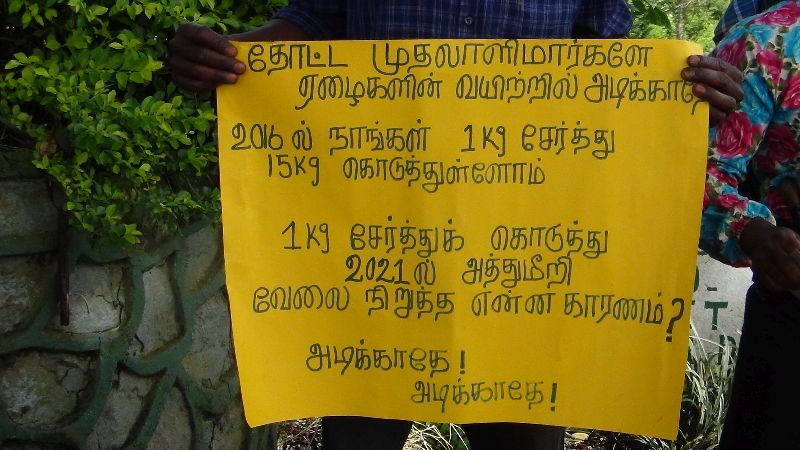 தோட்ட முதலாளிமார்களே
ஏழைகளின் வயிற்றில் அடிக்காதே
2016 ல் நாங்கள் 1Kg சேர்த்து
15Kg கொடுத்துள்ளோம்
1Kg சேர்த்துக் கொடுத்து
2021 ல் அத்துமீறி
வேலை நிறுத்த என்ன காரணம்?
அடிக்காதே!
அடிக்காதே!